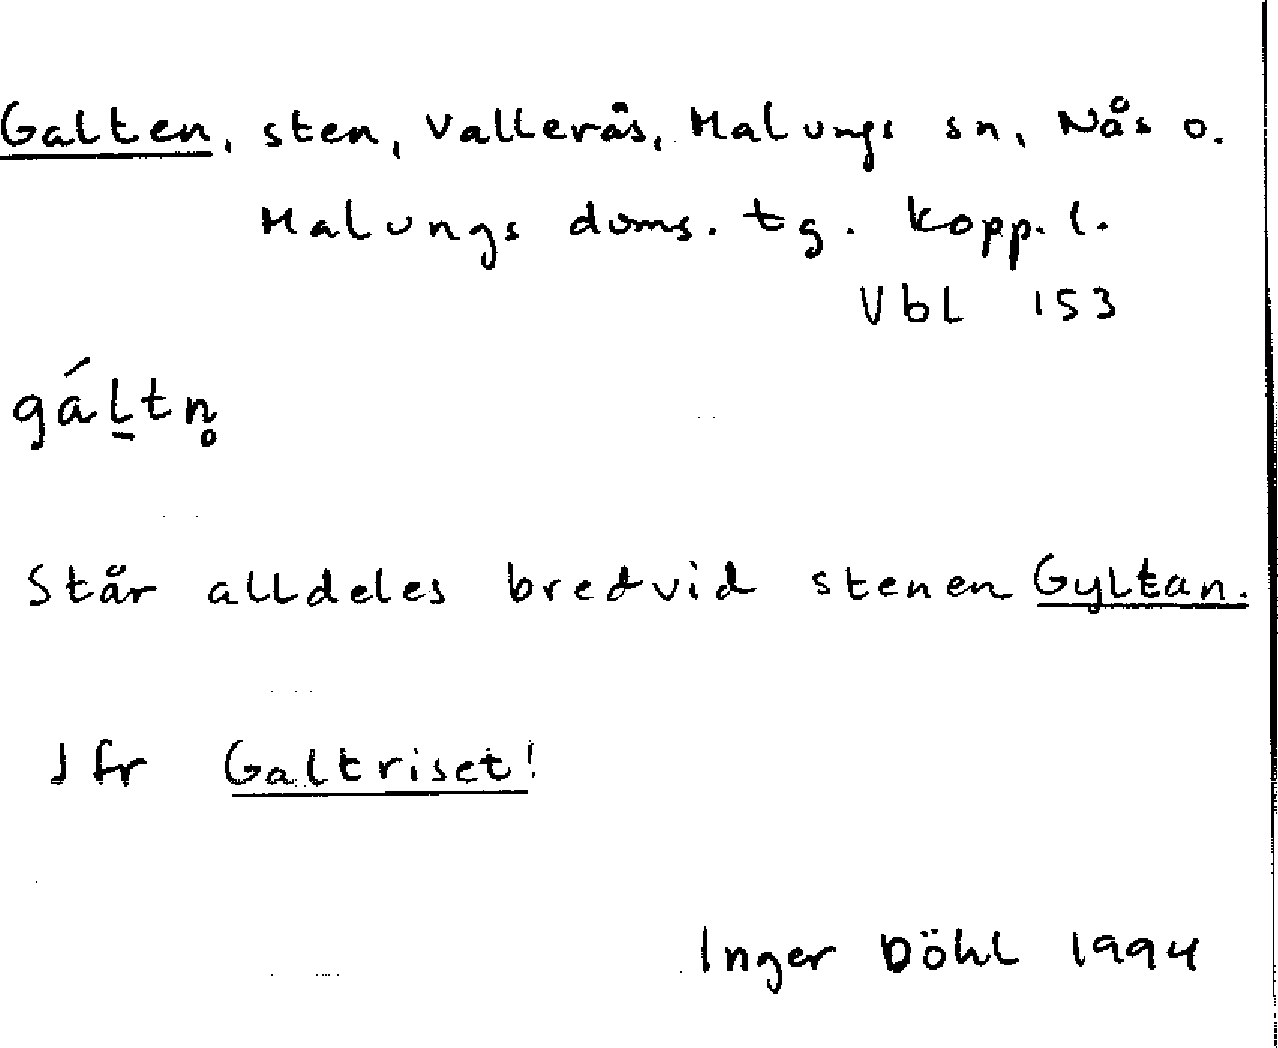 Galten, sten, Vallerås, Malungs sn, Nås o.
Malungs doms. tg. Kopp. l.
Vbl 153
gáḻtn̥
Står alldeles bredvid stenen Gyltan.
Jfr Galtriset!
Inger Döhl 1994